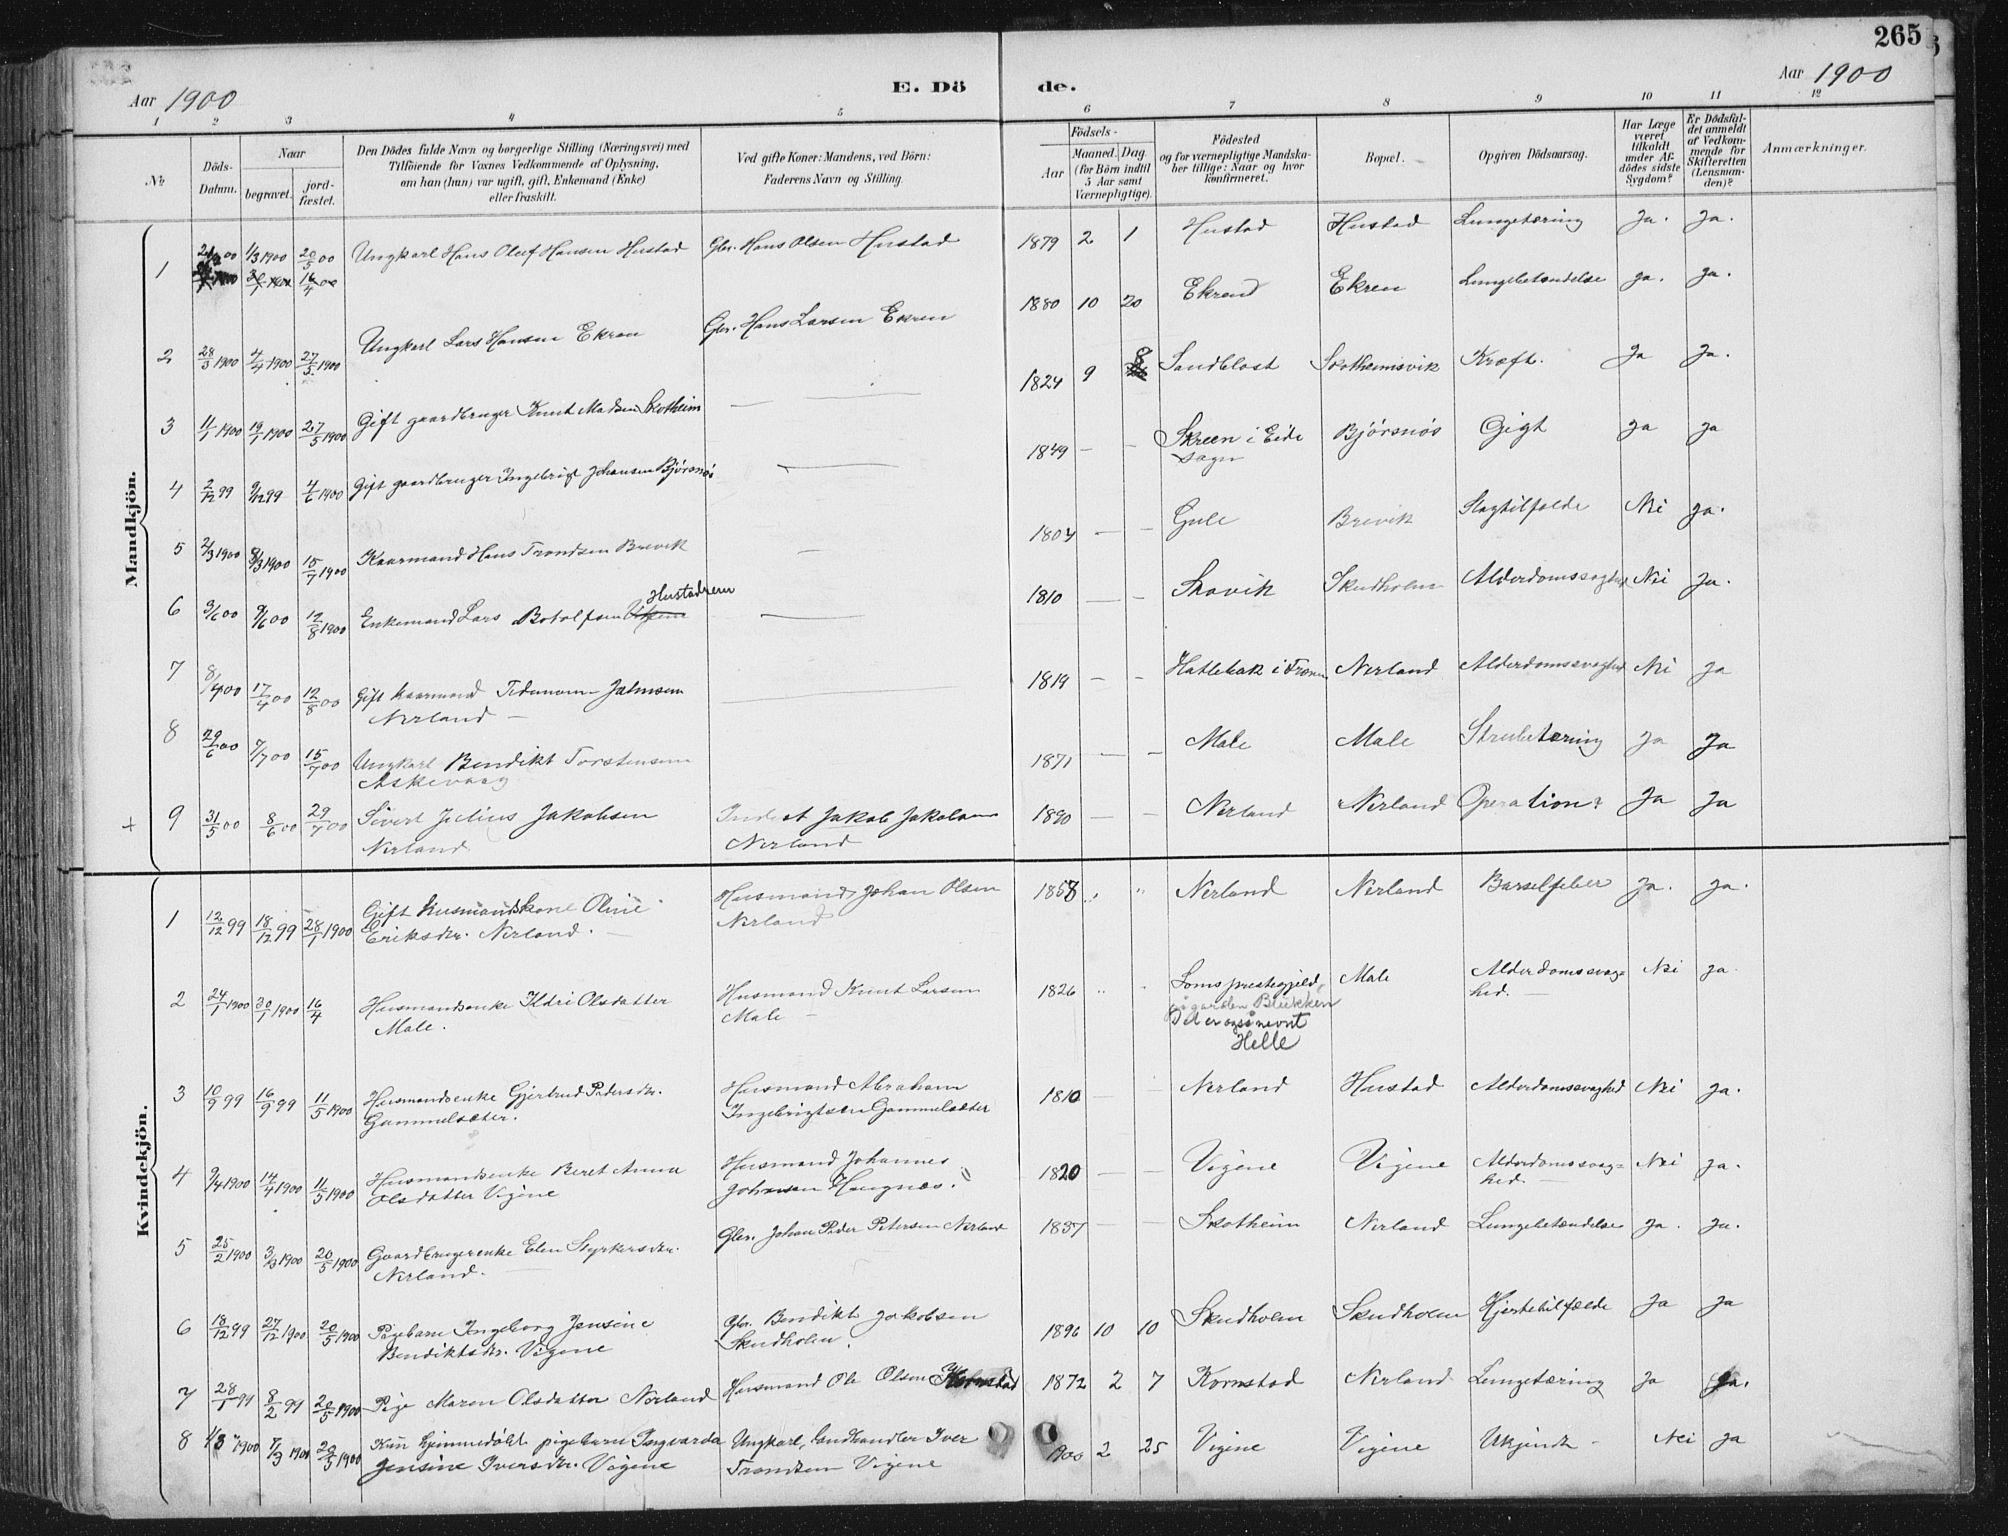 265
Aar 1900
E. Dö de.
Aar 1900
1 2 3 4 5 6 7 8 9 10 11 12
№
Döds-Datum.
Naar
begravet.
jord-fæstet.
Den Dödes fulde Navn og borgerlige Stilling (Næringsvei) med
Tilföiende for Voxnes Vedkommende af Oplysning,
om han (hun) var ugift, gift, Enkemand (Enke)
eller fraskilt.
Ved gifte Koner: Mandens, ved Börn:
Faderens Navn og Stilling.
Födsels-
Aar
Maaned. Dag
(for Börn indtil
5 Aar samt
Værnepligtige).
Födested
og for værnepligtige Mandska-
ber tillige: Naar og hvor
konfirmeret.
Bopæl.
Opgiven Dödsaarsag.
Har Læge
været
tilkaldt
under Af-
dödes sidste
Sygdom?
Er Dödsfal-
det anmeldt
af Vedkom-
mende for
Skifteretten
(Lensman-
den)?
Anmærkninger.
Mandkjön.
1 1/3 1900 20/5 00 Ungkarl Hans Oluf Hansen Hustad Gbr. Hans Olsen Hustad 1879 2 1 Hustad Hustad Lungetæring Ja. Ja.
2 28/3 1900 4/4 1900 27/5 1900 Ungkarl Lars Hansen Ekren Gbr. Hans Larsen Ekren 1880 10 20 Ekren Ekren Lungebetændelse ja. ja.
3 11/1 1900 19/1 1900 27/5 1900 Gift gaardbruger Knut Madsen Skotheim — 1824 9 8 Sandblost Skotheimsvik Kræft. ja ja.
4 2/12 99 9/12 99 4/6 1900 Gift gaardbruger Ingebrigt Johansen Bjørsnøs — 1849 — — Skreen i Eide
sogn Bjørsnøs Gigt ja ja
5 2/3 1900 8/3 1900 15/7 1900 Kaarmand Hans Trondsen Brevik — 1804 — — Gule Brevik Slagtilfælde Nei ja.
6 3/6 00 9/6 00 12/8 1900 Enkemand Lars Botolfsen Hustadnem — 1810 — — Skovik Skudholm Alderdomssvaghed Nei ja.
7 8/4 00 17/4 00 12/8 00 Gift kaarmand Tidemann Johnsen
Nerland — 1819 — — Hatlebak i Fræn Nerland Alderdomssvaghed Nei ja
8 29/6 00 7/7 00 15/7 00 Ungkarl Bendikt Torstensen
Askevaag 1871 — — Male Male Strubetæring ja ja
+ 9 31/5 00 8/6 00 29/7 00 Sivert Julius Jakobsen
Nerland Inderst Jakob Jakobsen
Nerland 1890 — — Nerland Nerland Operation? Ja Ja
Kvindekjön.
1 12/12 99 18/12 99 28/1 1900 Gift Husmandskone Oline
Eriksdtr. Nerland. — Husmand Johan Olsen
Nerland 1858 " " Nerland Nerland Barselfeber ja. ja.
2 24/1 1900 30/1 1900 16/4 Husmandsenke Ildri Olsdatter
Male. Husmand Knut Larsen
Male — 1826 " " Loms prestegjeld,
på garden Blikken
Det er også nevnt
Helle Male Alderdomssvag=
hed. — Nei ja.
3 10/9 99 16/9 99 11/5 1900 Husmandsenke Gjertrud Pedersdtr.
Gammelsæter. Husmand Abraham
Ingebrigtsen Gammelsæter 1810 — — Nerland Hustad Alderdomssvaghed Nei ja.
4 9/4 1900 14/4 1900 11/5 1900 Husmandsenke Beret Anna
Olsdatter Vigene Husmand Johannes
Johansen Haugnæs. 1820 — — Vigene Vigene Alderdomssvag=
hed. — Nei ja.
5 25/2 1900 3/3 1900 20/5 1900 Gaardbrugerenke Elen Styrkersdtr.
Nerland. Gbr. Johan Peder Petersen Nerland 1837 — — Skotheim Nerland Lungebetændelse ja. ja.
6 18/12 99 27/12 1900 20/5 1900 Pigebarn Ingeborg Jensine
Bendiktsdtr. Vigene Gbr. Bendikt Jakobsen
Skudholm. 1896 10 10 Skudholm Skudholm Hjertetilfælde Ja ja
7 28/1 99 8/2 99 20/5 1900 Pige Maren Olsdatter Nerland Husmand Ole Olsen 1872 2 7 Kornstad Nerland Lungetæring ja ja.
8 1/3 1900 7/3 1900 20/5 1900 Kun hjemmedøbt pigebarn Ingvarda
Jensine Iversdtr. Vigene Ungkarl, landhandler Iver
Trondsen Vigene 1900 2 25 Vigene Vigene Ukjendt — Nei ja